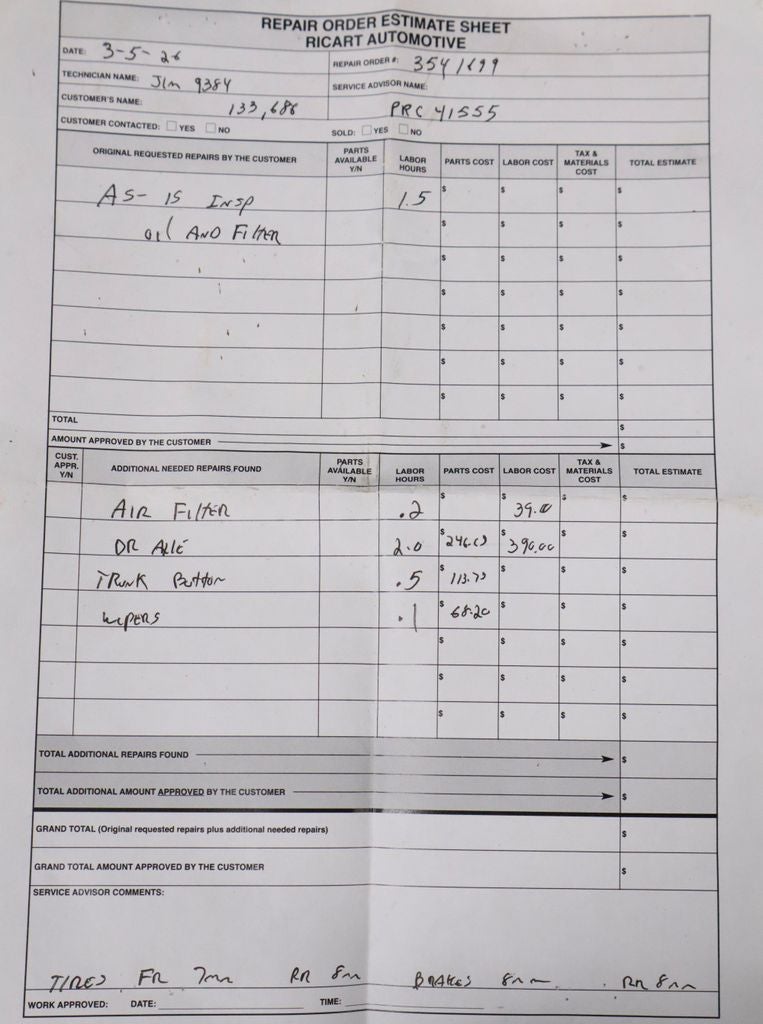 REPAIR ORDER ESTIMATE SHEET
RICART AUTOMOTIVE
DATE: 3-5-26 REPAIR ORDER #: 3541699
TECHNICIAN NAME: Jim 9384 SERVICE ADVISOR NAME:
CUSTOMER'S NAME: 133,686 PRC 41555
CUSTOMER CONTACTED: YES NO SOLD: YES NO
ORIGINAL REQUESTED REPAIRS BY THE CUSTOMER PARTS AVAILABLE Y/N LABOR HOURS PARTS COST LABOR COST TAX & MATERIALS COST TOTAL ESTIMATE
AS-IS INSP 1.5 $ $ $ $
oil AND FilTER $ $ $ $
$ $ $ $
$ $ $ $
$ $ $ $
$ $ $ $
$ $ $ $
TOTAL $
AMOUNT APPROVED BY THE CUSTOMER $
CUST. APPR. Y/N ADDITIONAL NEEDED REPAIRS FOUND PARTS AVAILABLE Y/N LABOR HOURS PARTS COST LABOR COST TAX & MATERIALS COST TOTAL ESTIMATE
AIR FilTER .2 $ $ 39.00 $ $
DR 2.0 $ $ 390.00 $ $
TRUNK Button .5 $ $ $ $
wipERS .1 $ 68.20 $ $ $
$ $ $ $
$ $ $ $
$ $ $ $
TOTAL ADDITIONAL REPAIRS FOUND $
TOTAL ADDITIONAL AMOUNT APPROVED BY THE CUSTOMER $
GRAND TOTAL (Original requested repairs plus additional needed repairs) $
GRAND TOTAL AMOUNT APPROVED BY THE CUSTOMER $
SERVICE ADVISOR COMMENTS:
TIRES FR 7mm RR 8mm BRAKES 8mm RR 8mm
WORK APPROVED: DATE: TIME: